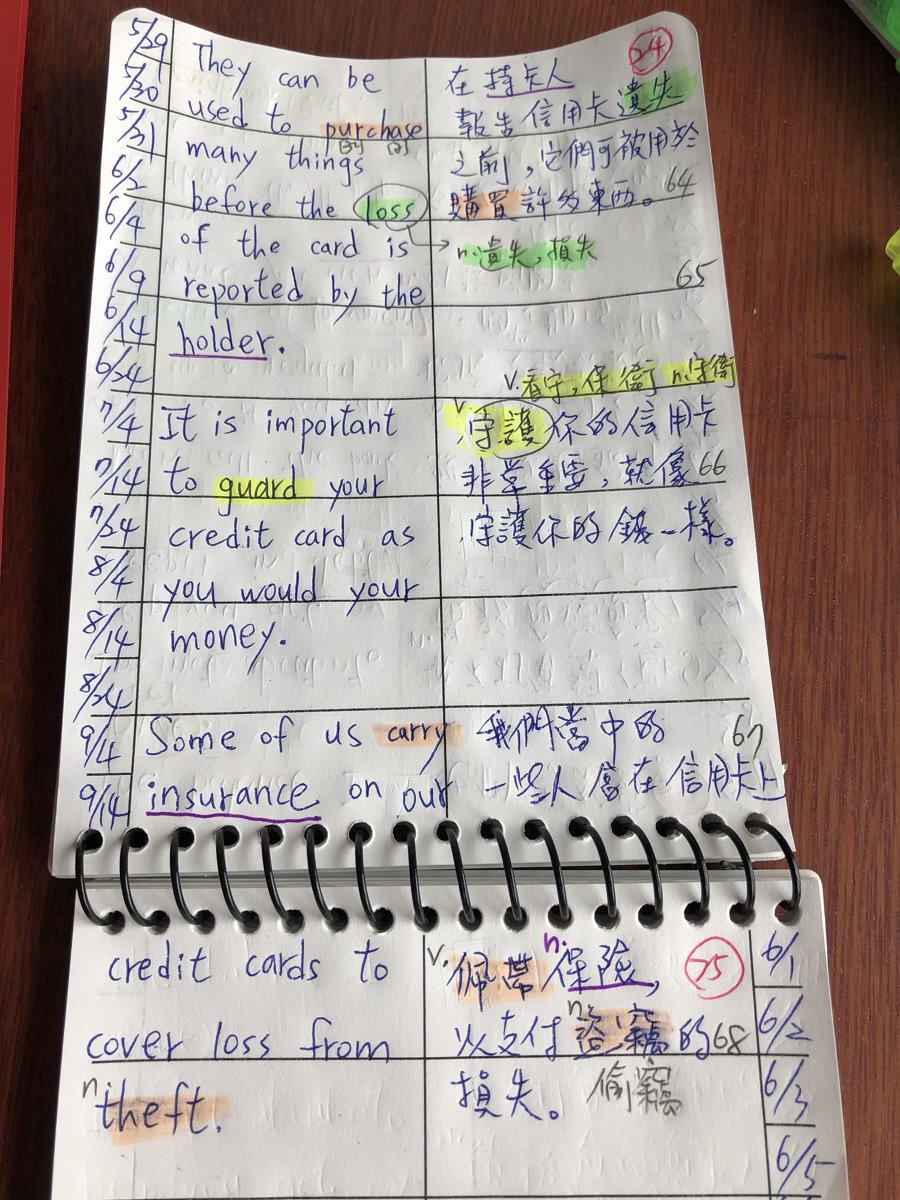 5/29
5/30
5/31
6/2
6/4
6/9
6/14
6/24
7/4
7/14
7/24
8/4
8/14
8/24
9/4
9/14
They can be
used to purchase
many things
before the loss
of the card is
reported by the
holder.
It is important
to guard your
credit card as
you would your
money.
Some of us carry
insurance on our
24
在持卡人
報告信用卡遺失
之前,它們可被用於
購買許多東西。64
n.遺失,損失
65
v.看守,保衛 n.守衛
v.守護你的信用卡
非常重要,就像66
守護你的錢一樣。
我們當中的 67
一些人會在信用卡上
credit cards to
cover loss from
n.
theft.
v. n.
佩帶保險, 75
n.
以支付盜竊的68
損失。 偷竊
6/1
6/2
6/3
6/5